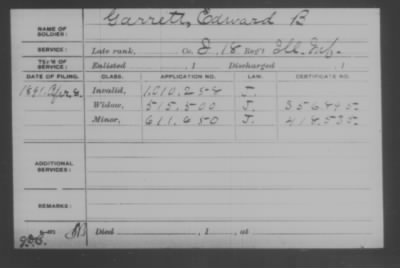 Garrett, Edward B
NAME OF SOLDIER:
SERVICE: Late rank, Co. D, 18 Reg't Ill. Inf.
TERM OF SERVICE: Enlisted , 1 Discharged , 1
DATE OF FILING. CLASS. APPLICATION NO. LAW. CERTIFICATE NO.
1891, Apr. 6. Invalid, 1,010,254 J.
Widow, 515,500 J. 356445.
Minor, 611,650 J. 414,535.
ADDITIONAL SERVICES:
REMARKS:
Died , 1 , at